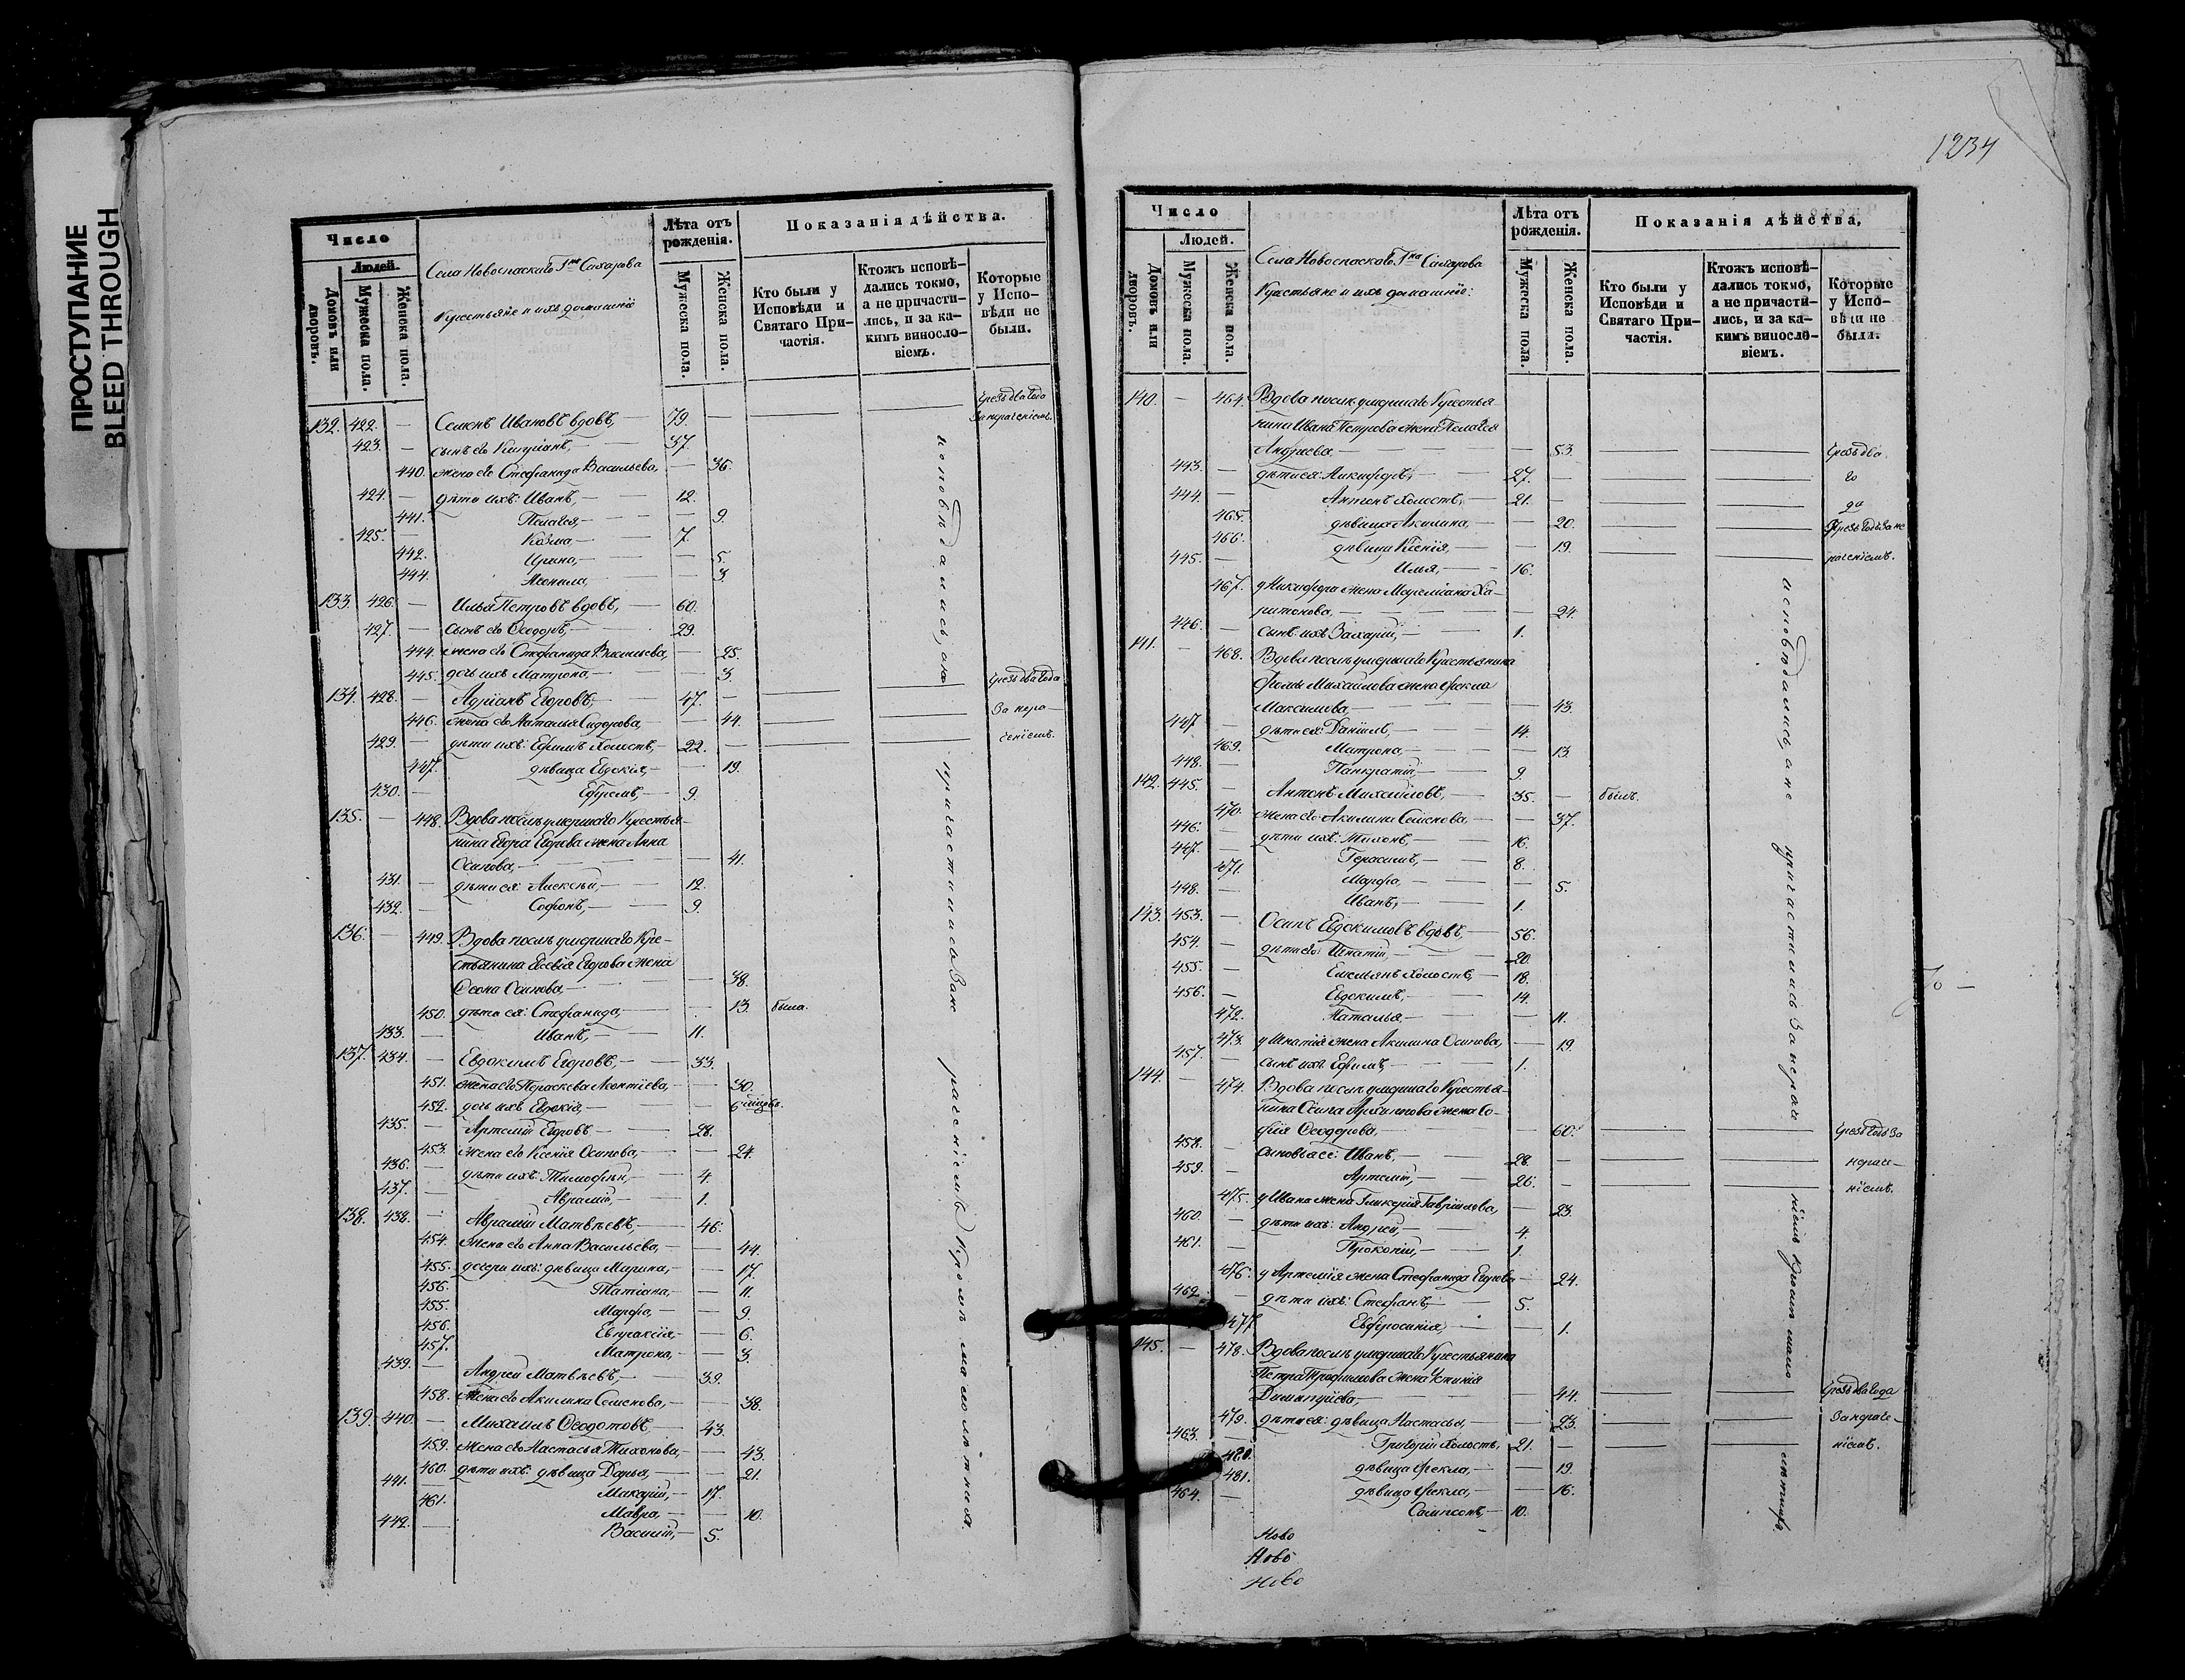 ПРОСТУПАНИЕ
BLEED THROUGH
1234
Число
Людей.
Домовъ или дворовъ.
Мужеска пола.
Женска пола.
Села Новоспаскаго Г-на Сахарова
Крестьяне и ихъ домашніе
Лѣта отъ рожденія.
Мужеска пола.
Женска пола.
Показанія дѣйства.
Кто были у Исповѣди и Святаго Причастія.
Ктожъ исповѣдались токмо, а не причастились, и за какимъ винословіемъ.
Которые у Исповѣди не были.
чрезъ два года
за нераченіемъ.
132. 422. — Семенъ Ивановъ вдовъ, — 79. —
423. — сынъ его Кипріянъ, — 37.
440. жена его Стефанида Васильева, — 36.
424. — дѣти ихъ: Иванъ, — 12.
441. Пелагея, — 9.
425. — Козма, — 7.
442. Ирина, — 5.
444. Меонила, — 3.
133. 426. — Илья Петровъ вдовъ, — 60.
427. — сынъ его Ѳеодоръ, — 29.
444. жена его Стефанида Васильева, — 25.
445. дочь ихъ Матрона, — 3.
134. 428. — Адріанъ Егоровъ, — 47. — чрезъ два года
446. жена его Наталья Сидорова, — 44. — за нера-
429. — дѣти ихъ: Ефимъ холостъ, — 22. — ченіемъ.
447. дѣвица Евдокія, — 19.
430. — Ефремъ, — 9.
135. — 448. Вдова послѣ умершаго Крестья-
нина Егора Егорова жена Анна
Осипова, — 41.
431. — дѣти ея: Алексѣй, — 12.
432. — Софонъ, — 9.
136. — 449. Вдова послѣ умершаго Кре-
стьянина Евсевія Егорова жена
Ѳеона Осипова, — 38.
450. дѣти ея: Стефанида, — 13. была.
433. — Иванъ, — 11.
137. 434. — Евдокимъ Егоровъ, — 33.
451. жена его Параскева Леонтіева, — 30.
452. дочь ихъ Евдокія, — 6 мѣсцовъ.
435. — Артемій Егоровъ — 28.
453. жена его Ксенія Осипова, — 24.
436. — дѣти ихъ: Тимофѣй, — 4.
437. — Аврамій, — 1.
138. 438. — Аврамій Матвѣевъ, — 46.
454. жена его Анна Васильева, — 44.
455. дочери ихъ: дѣвица Марина, — 17.
456. Татіана, — 11.
455. Марфа, — 9.
456. Евпраксія, — 6.
457. Матрона, — 3.
439. — Андрей Матвѣевъ, — 39.
458. жена его Акилина Семенова, — 38.
139. 440. — Михаилъ Ѳеодотовъ — 43.
459. жена его Настасья Тихонова, — 43.
460. дѣти ихъ: дѣвица Дарья, — 21.
441. — Макарій, — 17.
461. Мавра, — 10.
442. — Василій, — 5.
исповѣдались, а не причастились за нераченіемъ кромѣ малолѣтныхъ.
Число
Людей.
Домовъ или дворовъ.
Мужеска пола.
Женска пола.
Села Новоспаскаго Г-на Сахарова
Крестьяне и ихъ домашніе:
Лѣта отъ рожденія.
Мужеска пола.
Женска пола.
Показанія дѣйства,
Кто были у Исповѣди и Святаго Причастія.
Ктожъ исповѣдались токмо, а не причастились, и за какимъ винословіемъ.
Которые у Исповѣди не были.
140. — 464. Вдова послѣ умершаго Крестья-
нина Ивана Петрова жена Пелагея
Андреева — 53. — чрезъ два
443. — дѣти ея: Никифоръ, — 27. — го
444. — Антонъ холостъ, — 21. — да
465. дѣвица Акилина, — 20. — чрезъ годъ за не
466. дѣвица Ксенія, — 19. — раченіемъ.
445. — Илья, — 16.
467. у Никифора жена Мареміана Ха-
ритонова, — 24.
446. — сынъ ихъ Захарій, — 1.
141. — 468. Вдова послѣ умершаго Крестьянина
Фомы Михайлова жена Фекла
Максимова, — 43.
447. — дѣти ея: Даніилъ, — 14.
469. Матрона, — 13.
448. — Панкратій, — 9.
142. 445. — Антонъ Михайловъ, — 35. — былъ.
470. жена его Акилина Семенова, — 37.
446. — дѣти ихъ: Тихонъ, — 16.
447. — Герасимъ, — 8.
471. Марфа, — 5.
448. — Иванъ, — 1.
143. 453. — Осипъ Евдокимовъ вдовъ, — 56.
454. — дѣти его: Игнатій, — 20.
455. — Емельянъ холостъ, — 18.
456. — Евдокимъ, — 14.
472. Наталья — 11.
473. у Игнатія жена Акилина Осипова, — 19.
457. — сынъ ихъ Ефимъ, — 1.
144. — 474. Вдова послѣ умершаго Крестья-
нина Осипа Архипова жена Со-
фія Ѳеодорова, — 60. — чрезъ годъ за
458. — сыновья ее: Иванъ, — 28. — нераче-
459. — Артемій, — 26. — ніемъ.
475. у Ивана жена Гликерія Гаврилова, — 23.
460. — дѣти ихъ: Андрей, — 4.
461. — Прокопій, — 1.
476. у Артемія жена Стефанида Егорова — 24.
462. — дѣти ихъ: Стефанъ, — 5.
477. Евфросинія, — 1.
145. — 478. Вдова послѣ умершаго Крестьянина
Петра Трофимова жена Устинія
Димитріева, — 44. — чрезъ два года
479. дѣти ея: дѣвица Настасья, — 23. — за нераче-
463. — Григорій холостъ, 21. — ніемъ.
480. дѣвица Фекла, — 19.
481. дѣвица Фекла, — 16.
464. — Сампсонъ, — 10.
исповѣдались, а не причастились за нераченіемъ кромѣ мало лѣтнихъ
Ново
Ново
Ново